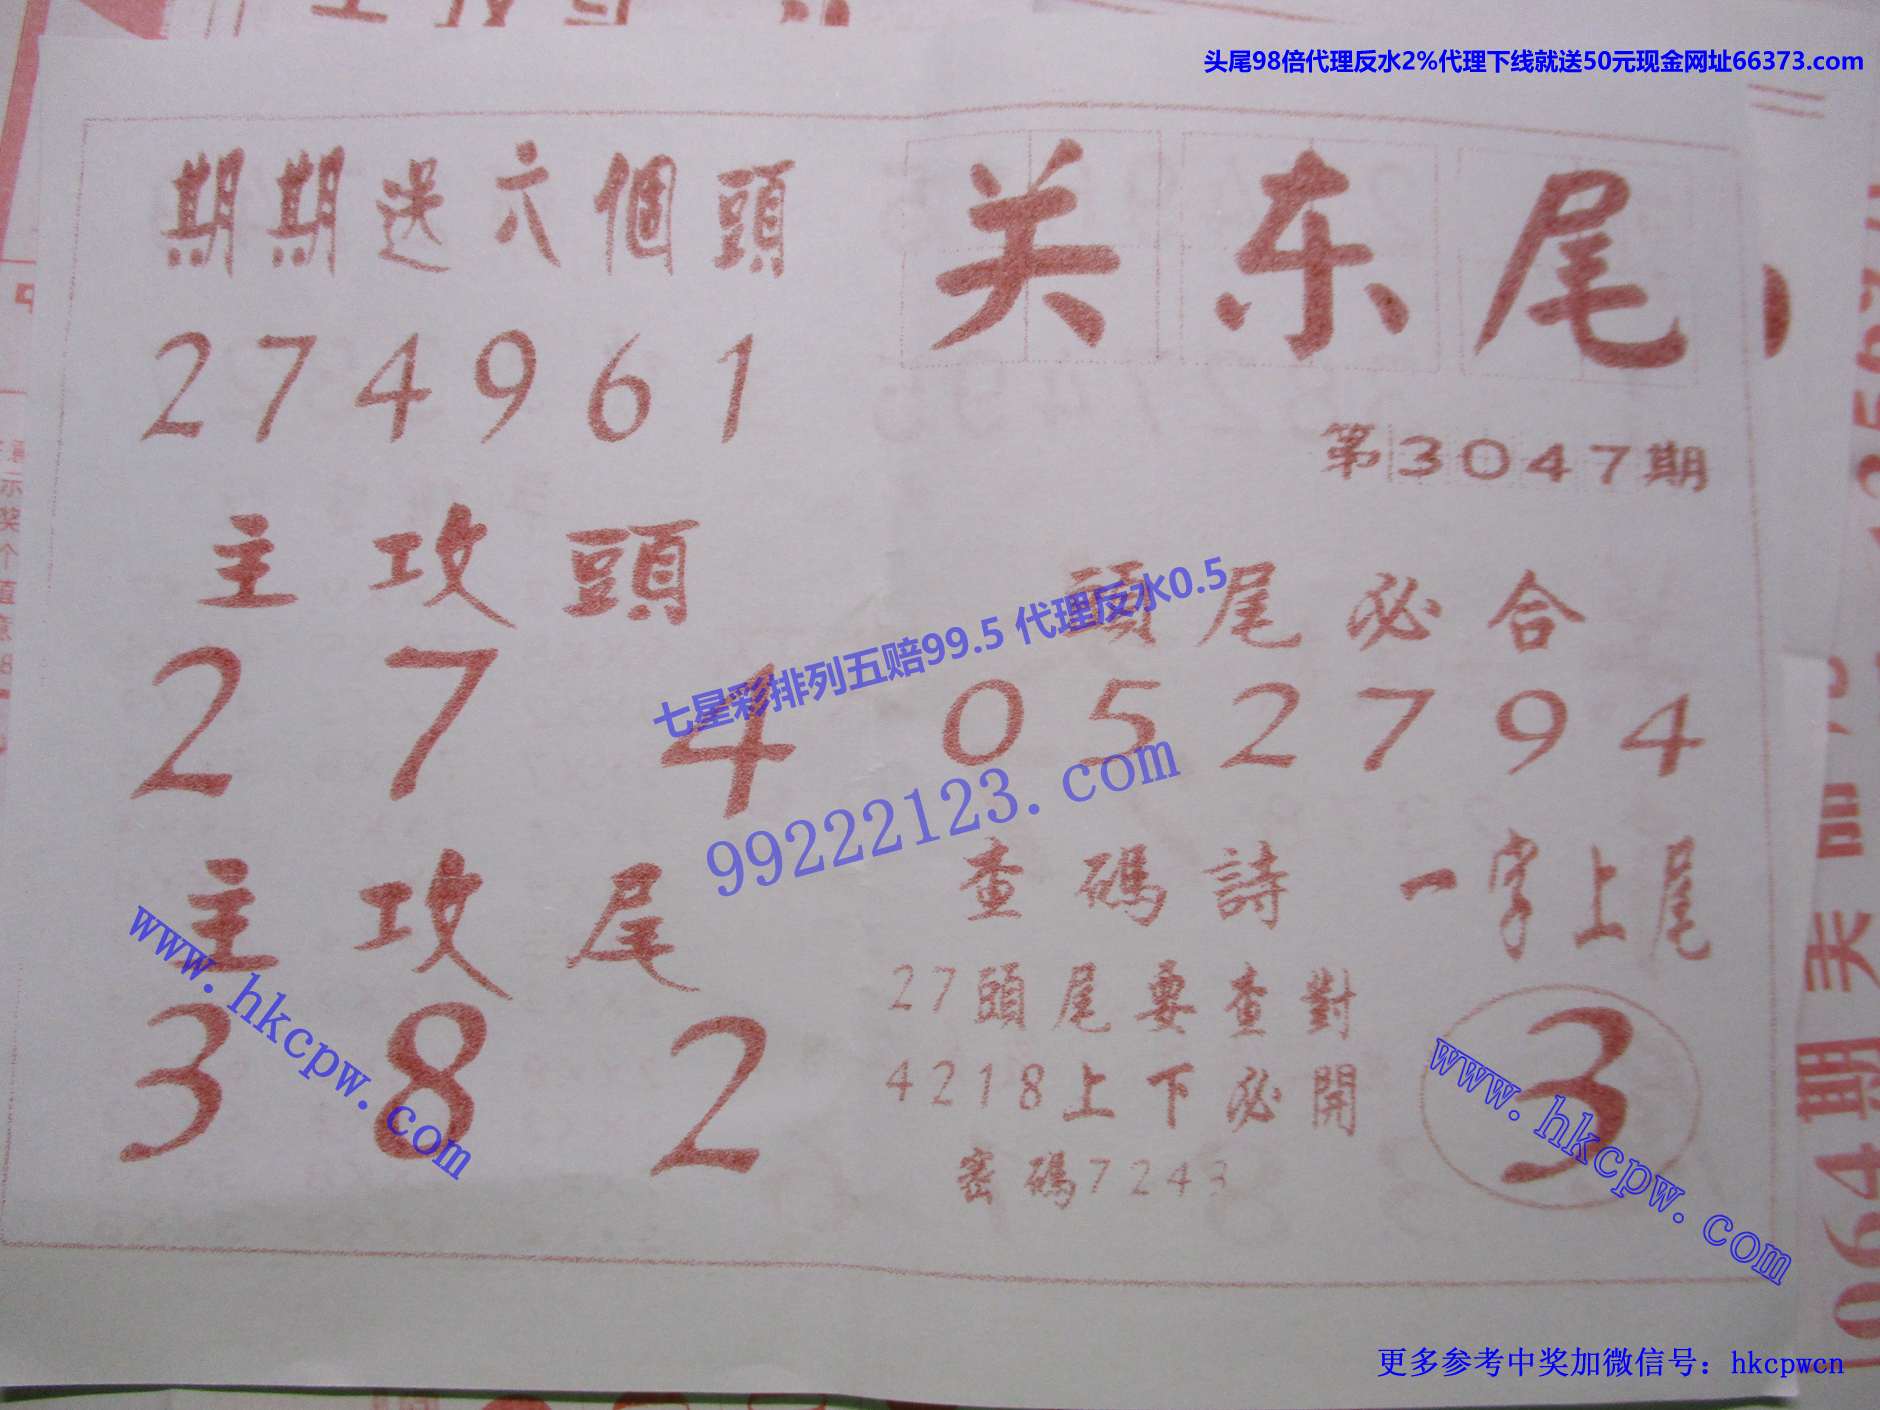 头尾98倍代理反水2%代理下线就送50元现金网址66373.com
期期送六個頭
274961
关东尾
第3047期
主攻頭
2 7 4
頭尾必合
052794
七星彩排列五赔99.5 代理反水0.5
99222123.com
主攻尾
3 8 2
查碼詩
27頭尾要查對
4218上下必開
密碼7243
一字上尾
3
www.hkcpw.com
www.hkcpw.com
064期关
更多参考中奖加微信号：hkcpwcn